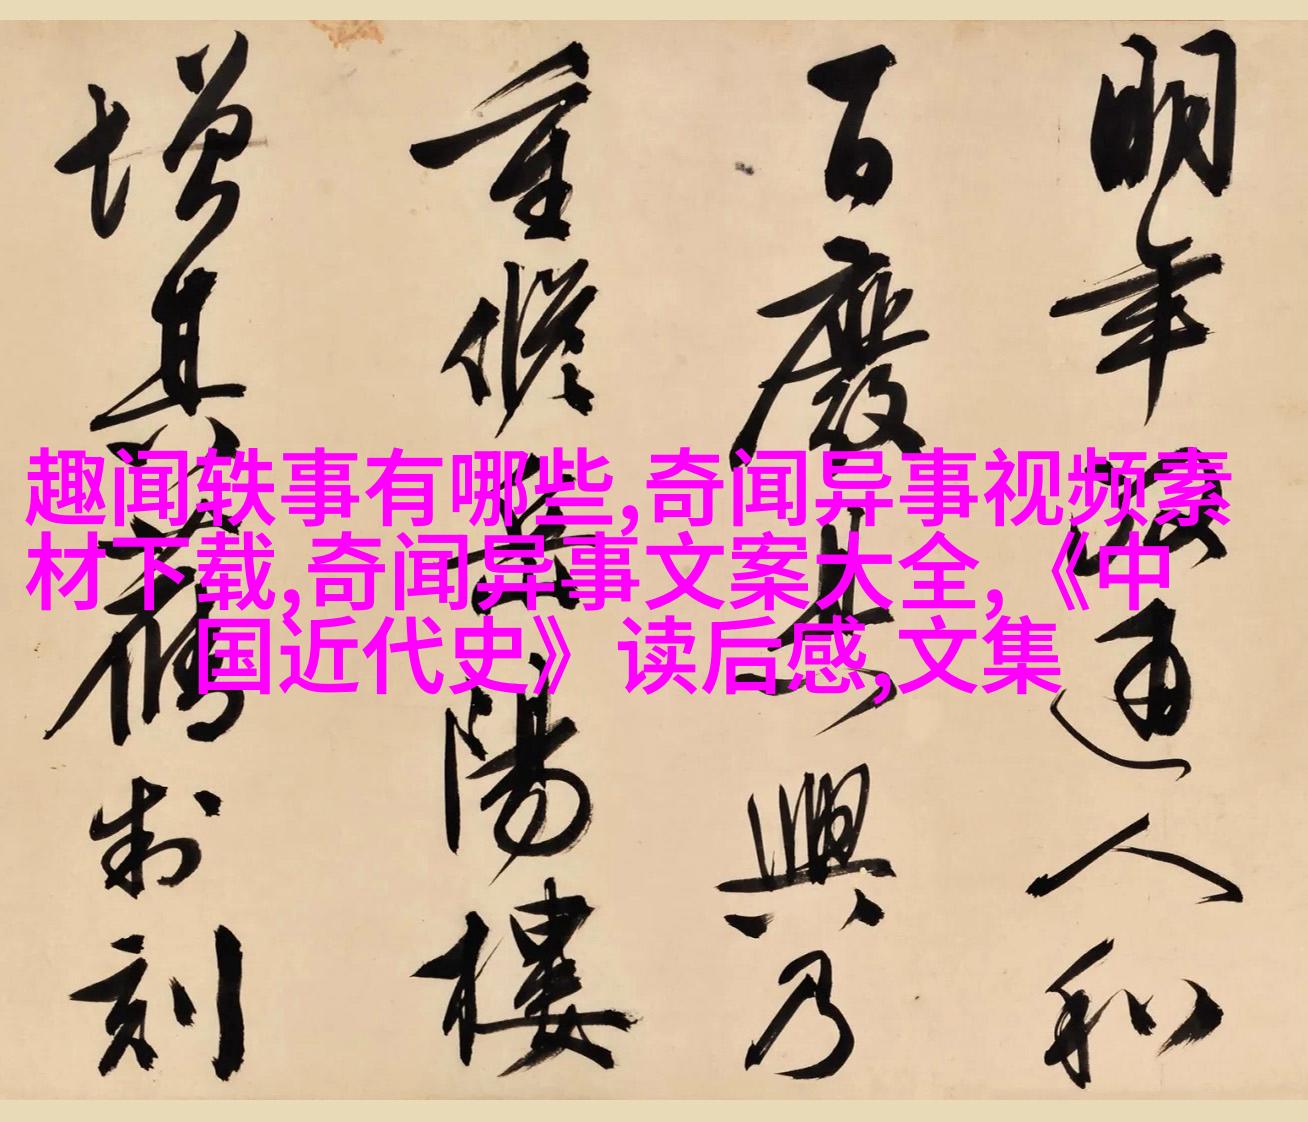 明年政通人和
百廢具興乃
重脩岳陽樓
增其舊制刻
趣闻轶事有哪些,奇闻异事视频素
材下载,奇闻异事文案大全,《中
国近代史》读后感,文集